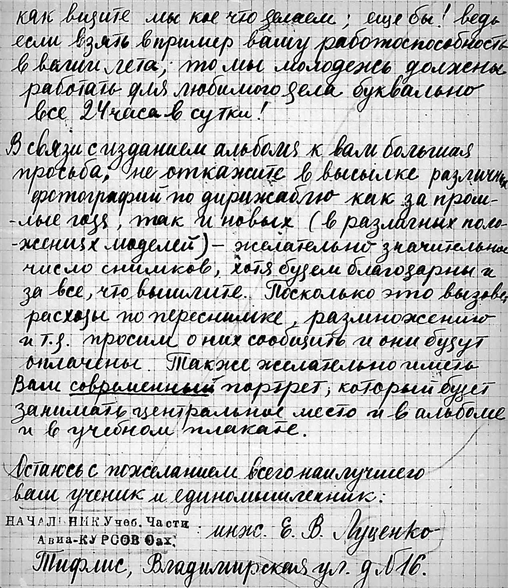 как видите мы кое что делаем; еще бы! ведь
если взять в пример вашу работоспособность
в ваши лета, то мы молодежь должны
работать для любимого дела буквально
все 24 часа в сутки!
В связи с изданием альбома к вам большая
просьба, не откажите в высылке различных
фотографий по дирижаблю как за прош-
-лые года, так и новых (в различных поло-
-жениях моделей) – желательно значительное
число снимков, хотя будем благодарны и
за все, что вышлите. Поскольку это вызовет
расходы по пересъмке, размножению
и т.д. просим о них сообщить и они будут
оплачены. Также желательно иметь
Вам современный портрет, который будет
занимать центральное место и в альбоме
и в учебном плакате.
Остаюсь с пожеланием всего наилучшего
ваш ученик и единомышленник:
НАЧАЛЬНИК Учеб. Части
Авиа-КУРСОВ Оах.
инж. Е. В. Луценко
Тифлис, Владимирская ул. д № 16.